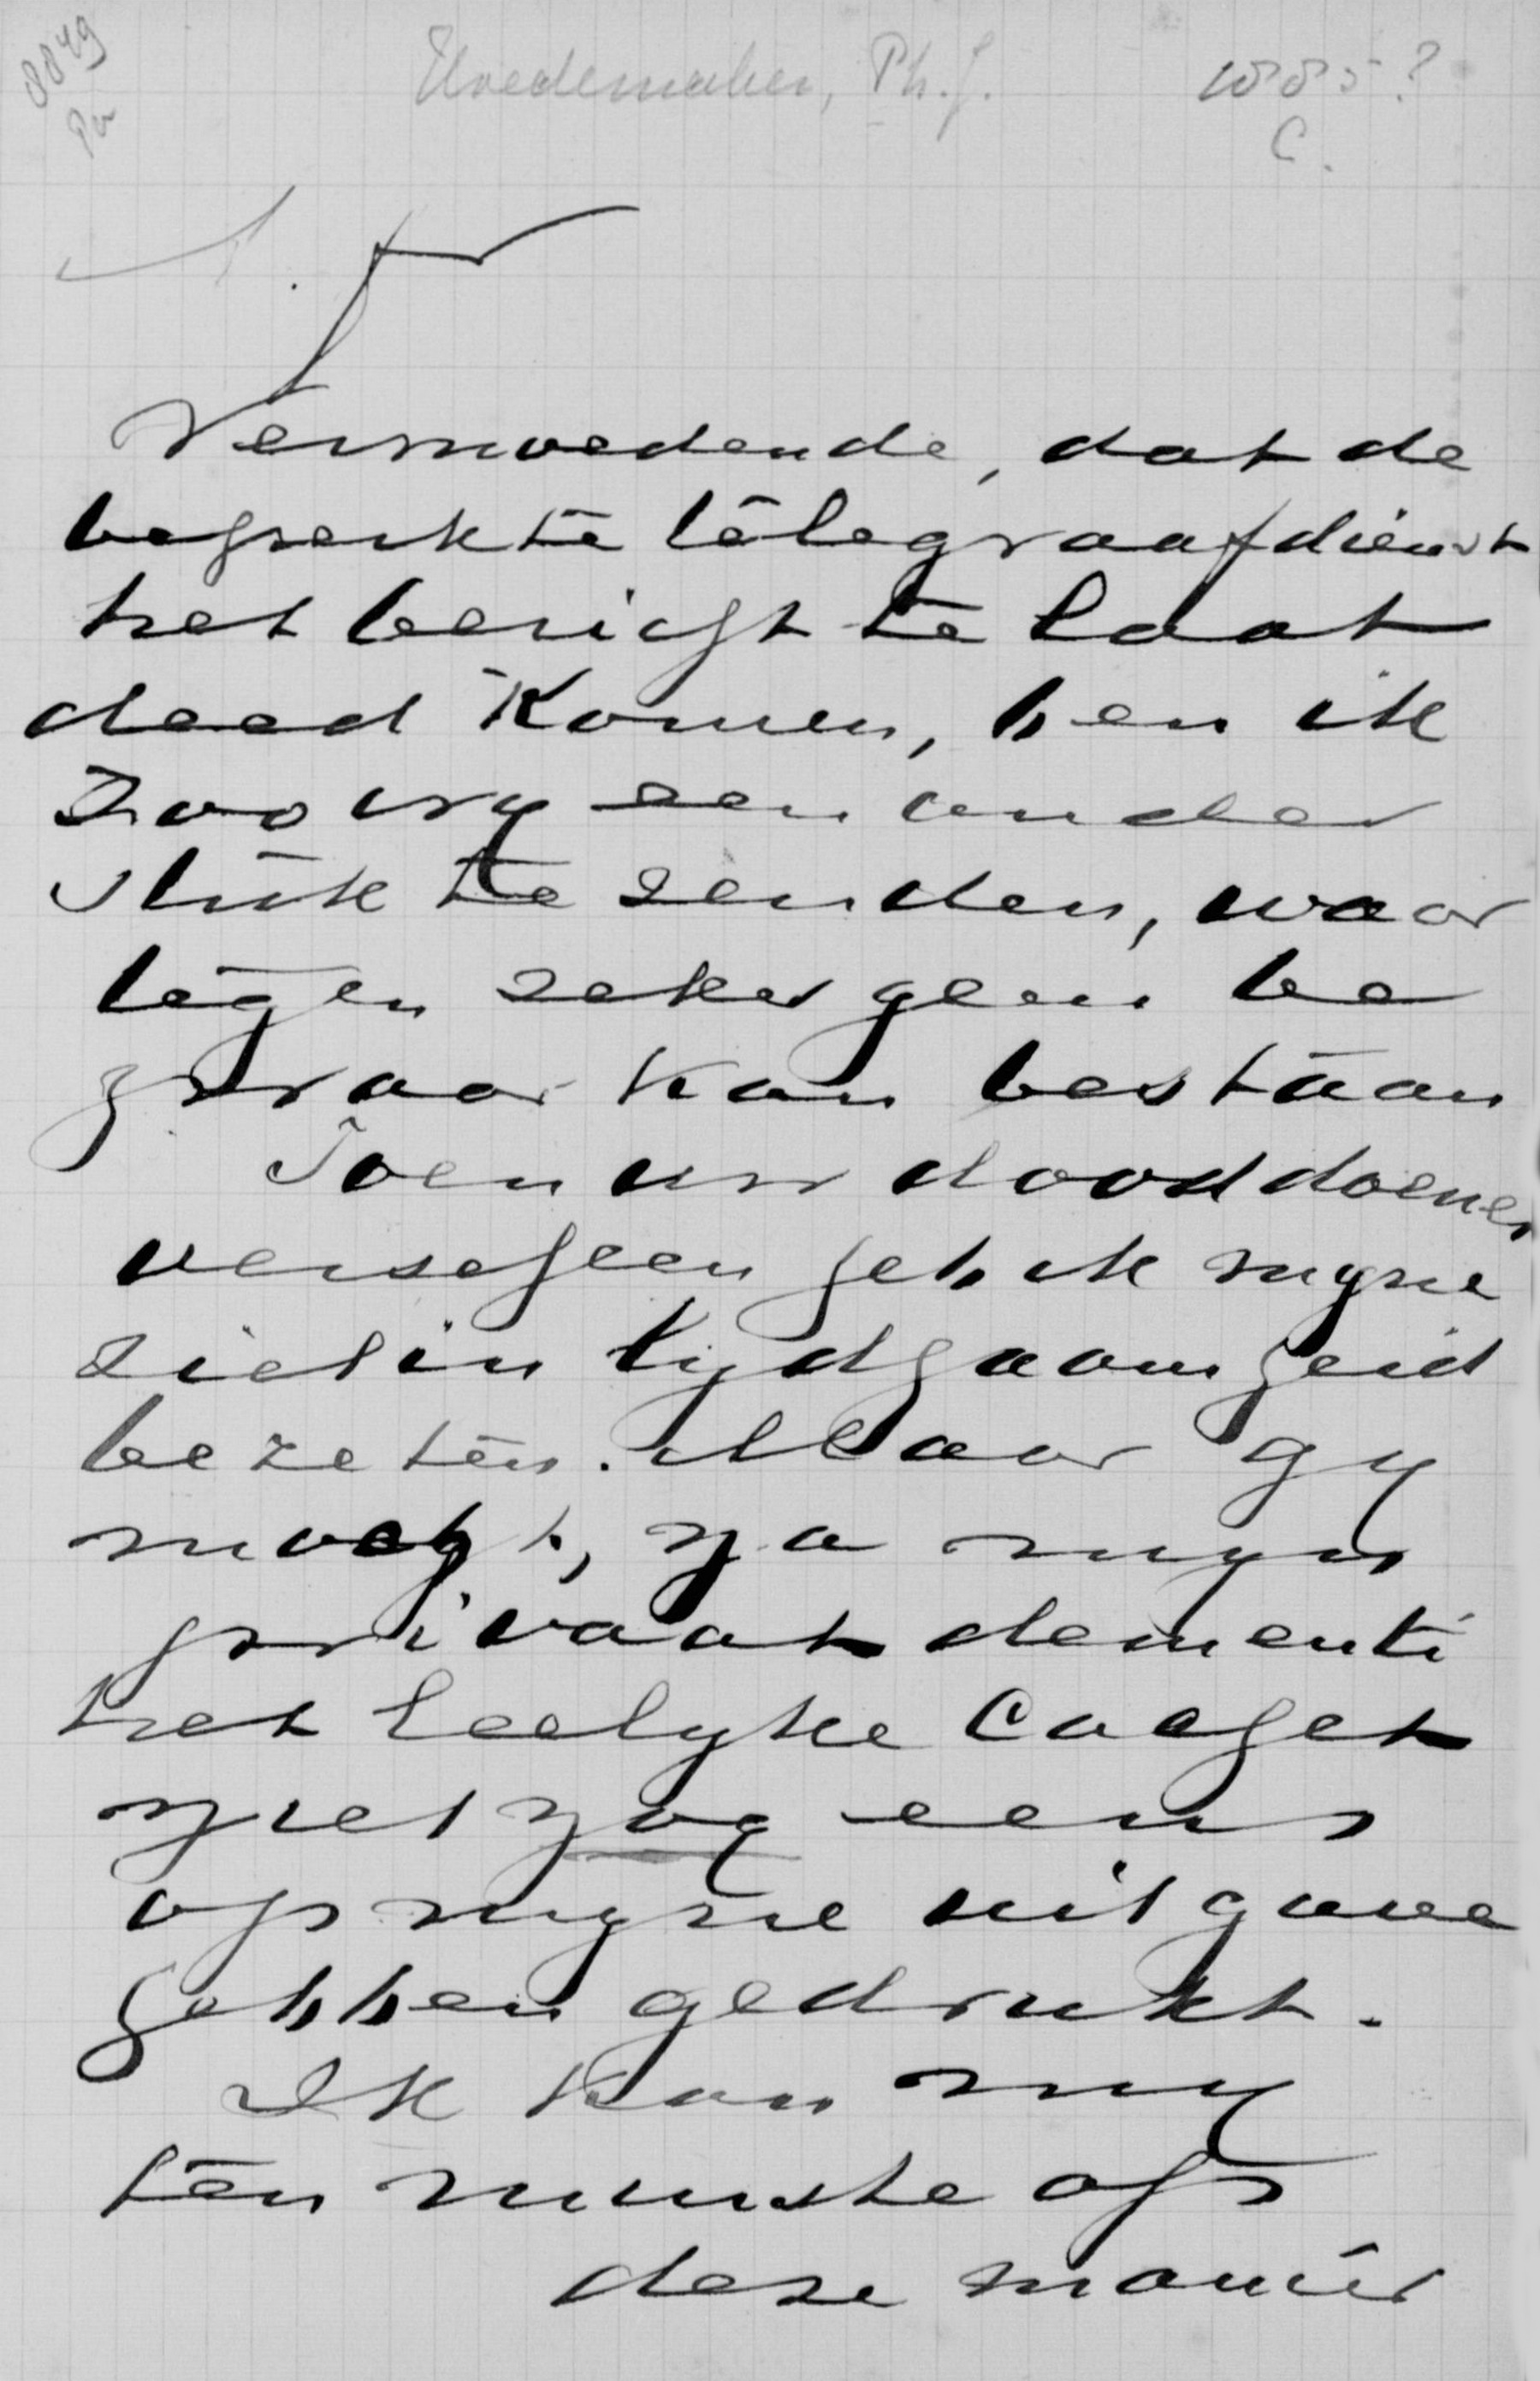 8849
Pu
Hoedemaker, Ph.J. 1885?
C.
Vermoedende, dat de
beperkte telegraafdienst
het bericht te laat
deed komen, ben ik
zoo vry een ander
stuk te zenden, waar
tegen zeker geen be
zwaar kan bestaan
Toen uw dooddoener
verscheen heb ik myne
ziel in lydzaamheid
bezeten. Maar gy
moogt, na myn
privaat dementi
het leelyke cachet
niet nog eens
op myne uitgave
hebben gedrukt.
Ik kan my
ten minste op
deze manier